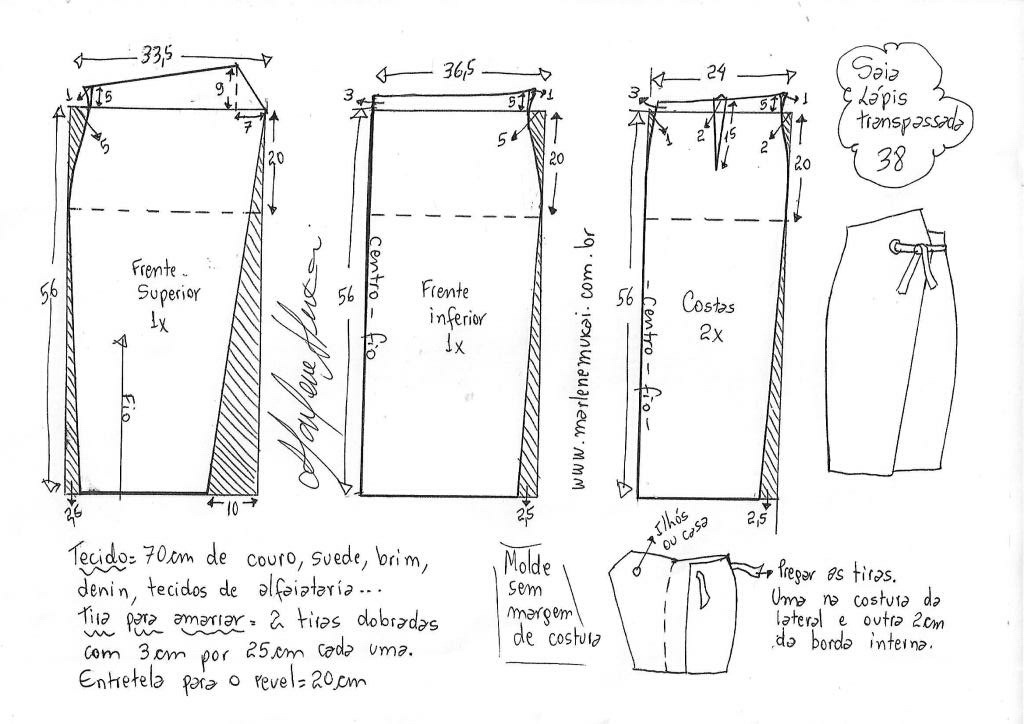 33,5
1
5
9
7
5
20
56
Frente
Superior
1x
Fio
2,5
10
36,5
3
5
1
5
20
56
Centro - fio
Frente
inferior
1x
2,5
www.marlenemukai.com.br
24
3
1
2
15
5
1
2
20
56
- Centro - fio -
Costas
2x
2,5
Saia
Lápis
transpassada
38
Tecido= 70cm de couro, suede, brim,
denin, tecidos de alfaiataria...
Tira para amarrar = 2 tiras dobradas
com 3cm por 25cm cada uma.
Entretela para o revel= 20cm
Molde
sem
margem
de costura
Ilhós
ou casa
Pregar as tiras.
Uma na costura da
lateral e outra 2cm
da borda interna.